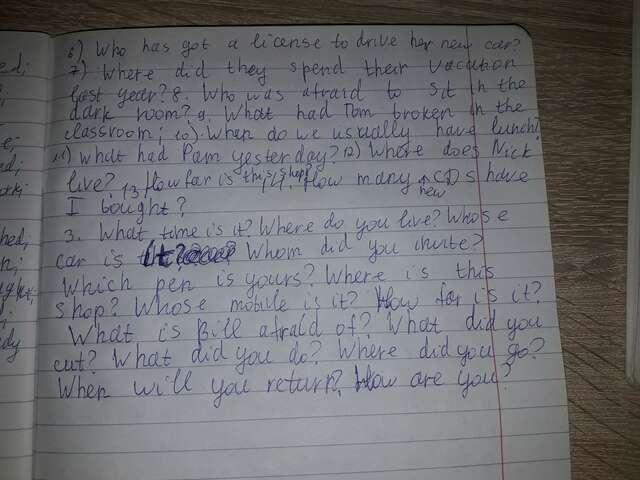 6) Who has got a license to drive her new car?
7) Where did they spend their vacation
last year? 8. Who was afraid to sit in the
dark room? 9. What had Tom broken in the
classroom; 10) When do we usually have lunch?
11) What had Pam yesterday? 12) Where does Nick
live? 13. How far is this shop? 14. How many new CDs have
I bought?
3. What time is it? Where do you live? Whose
car is it? Whom did you invite?
Which pen is yours? Where is this
shop? Whose mobile is it? How far is it?
What is Bill afraid of? What did you
cut? What did you do? Where did you go?
When will you return? How are you?